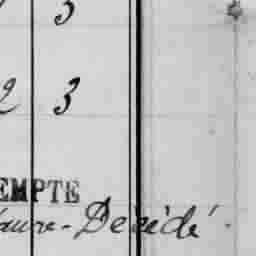 3
2 3
EMPTE
Décédé